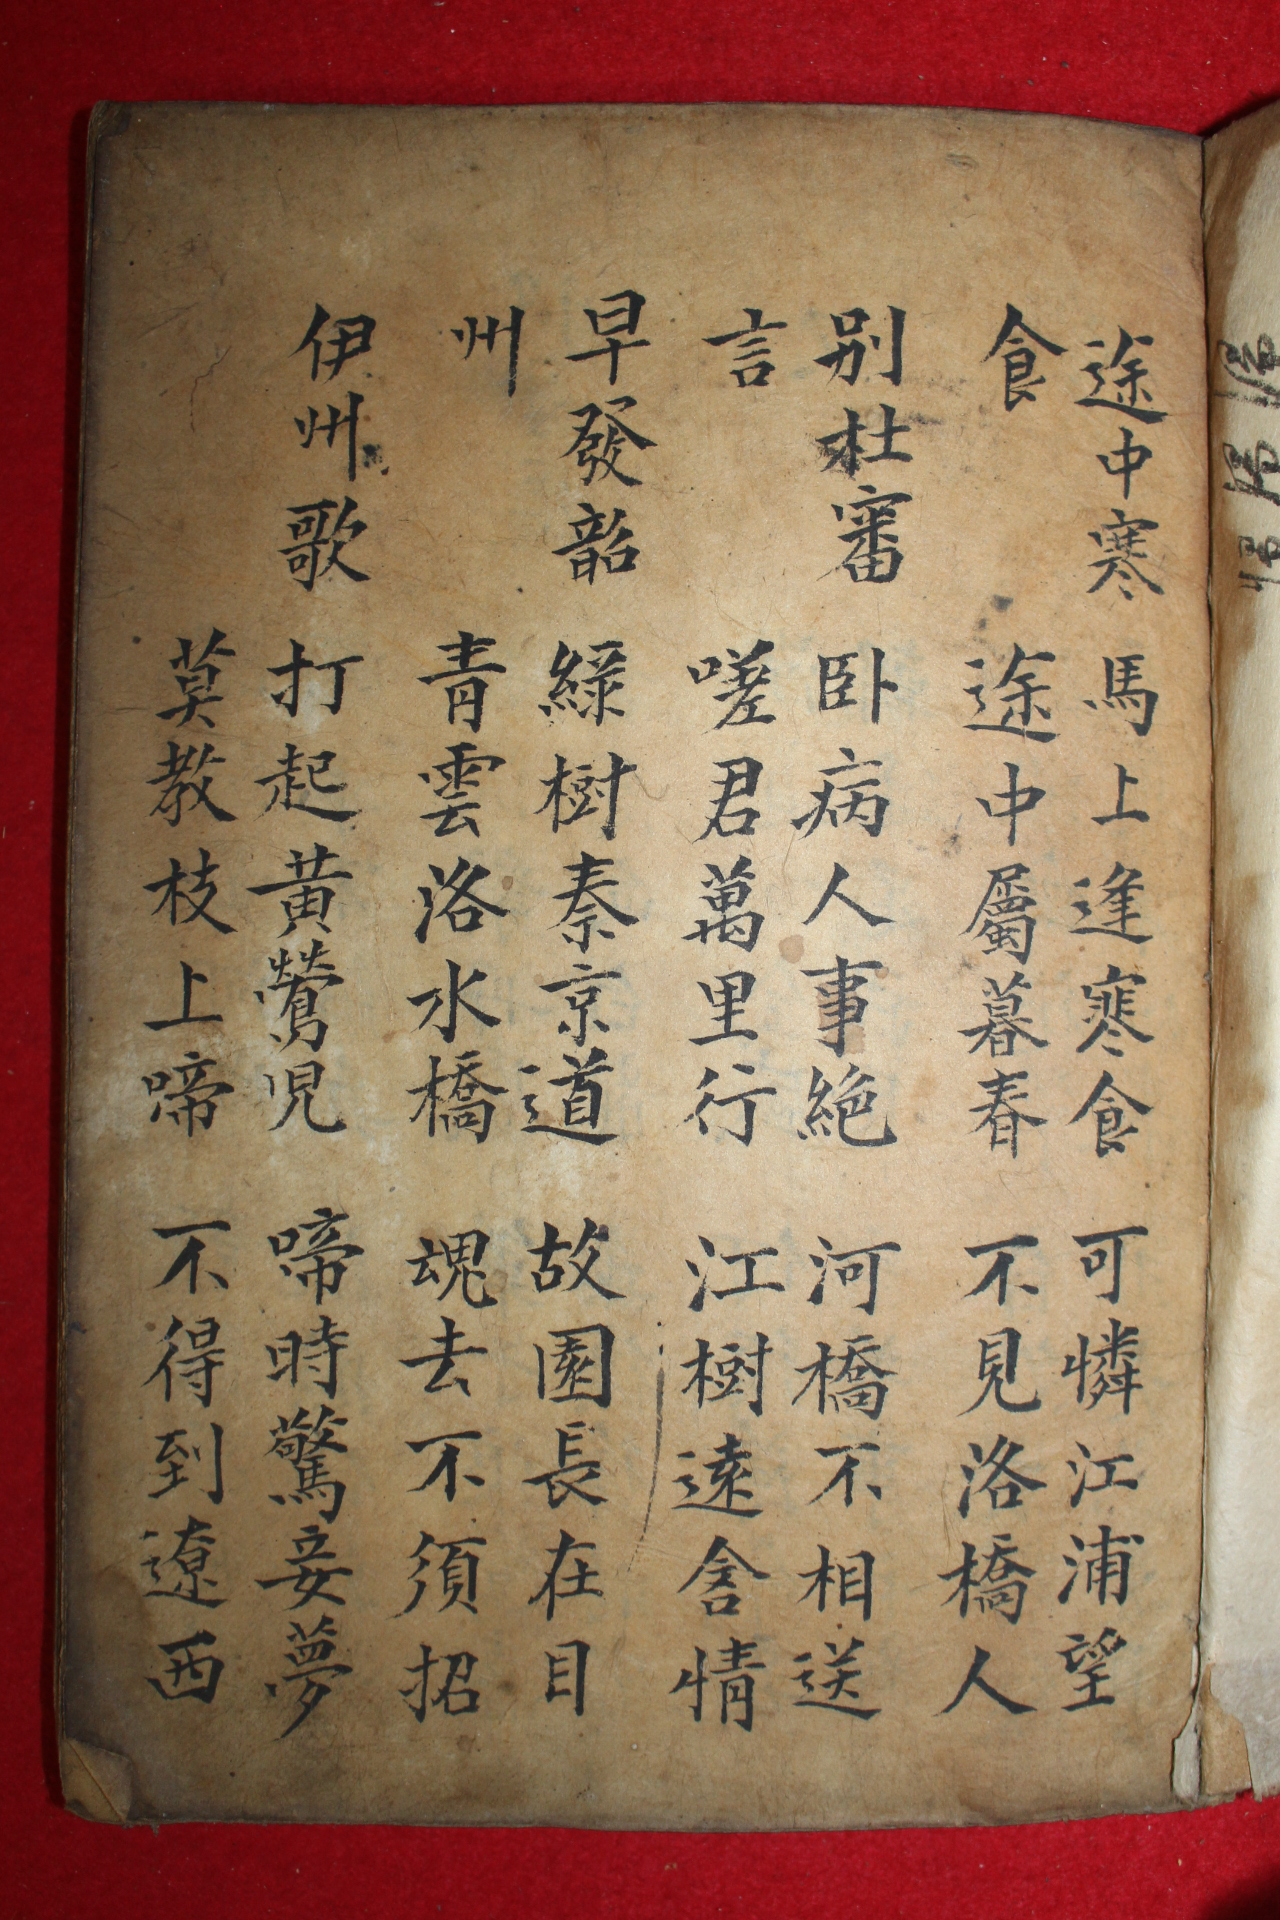 途中寒 馬上逢寒食 可憐江浦望
食 途中屬暮春 不見洛橋人
别杜審 卧病人事絶 河橋不相送
言 嗟君萬里行 江樹遠含情
早發韶 綠樹秦京道 故園長在目
州 青雲洛水橋 魂去不須招
伊州歌 打起黄鶯児 啼時驚妾夢
莫教枝上啼 不得到遼西